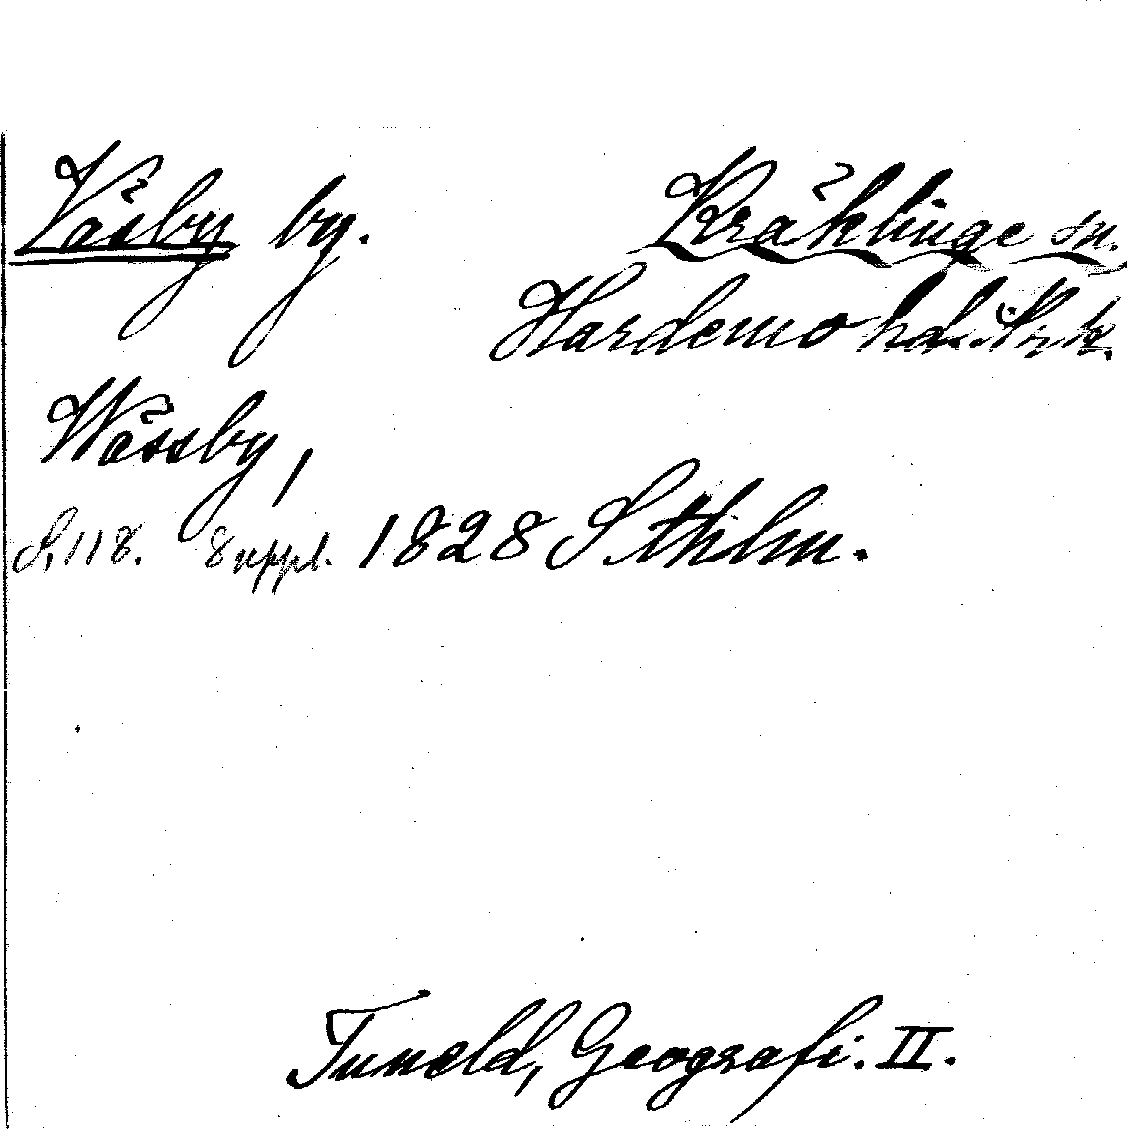 Väsby by. Kräklinge sn.
Hardemo hd.
Wässby,
S. 118. Suppl. 1828 Sthlm.
Tuneld, Geografi. II.